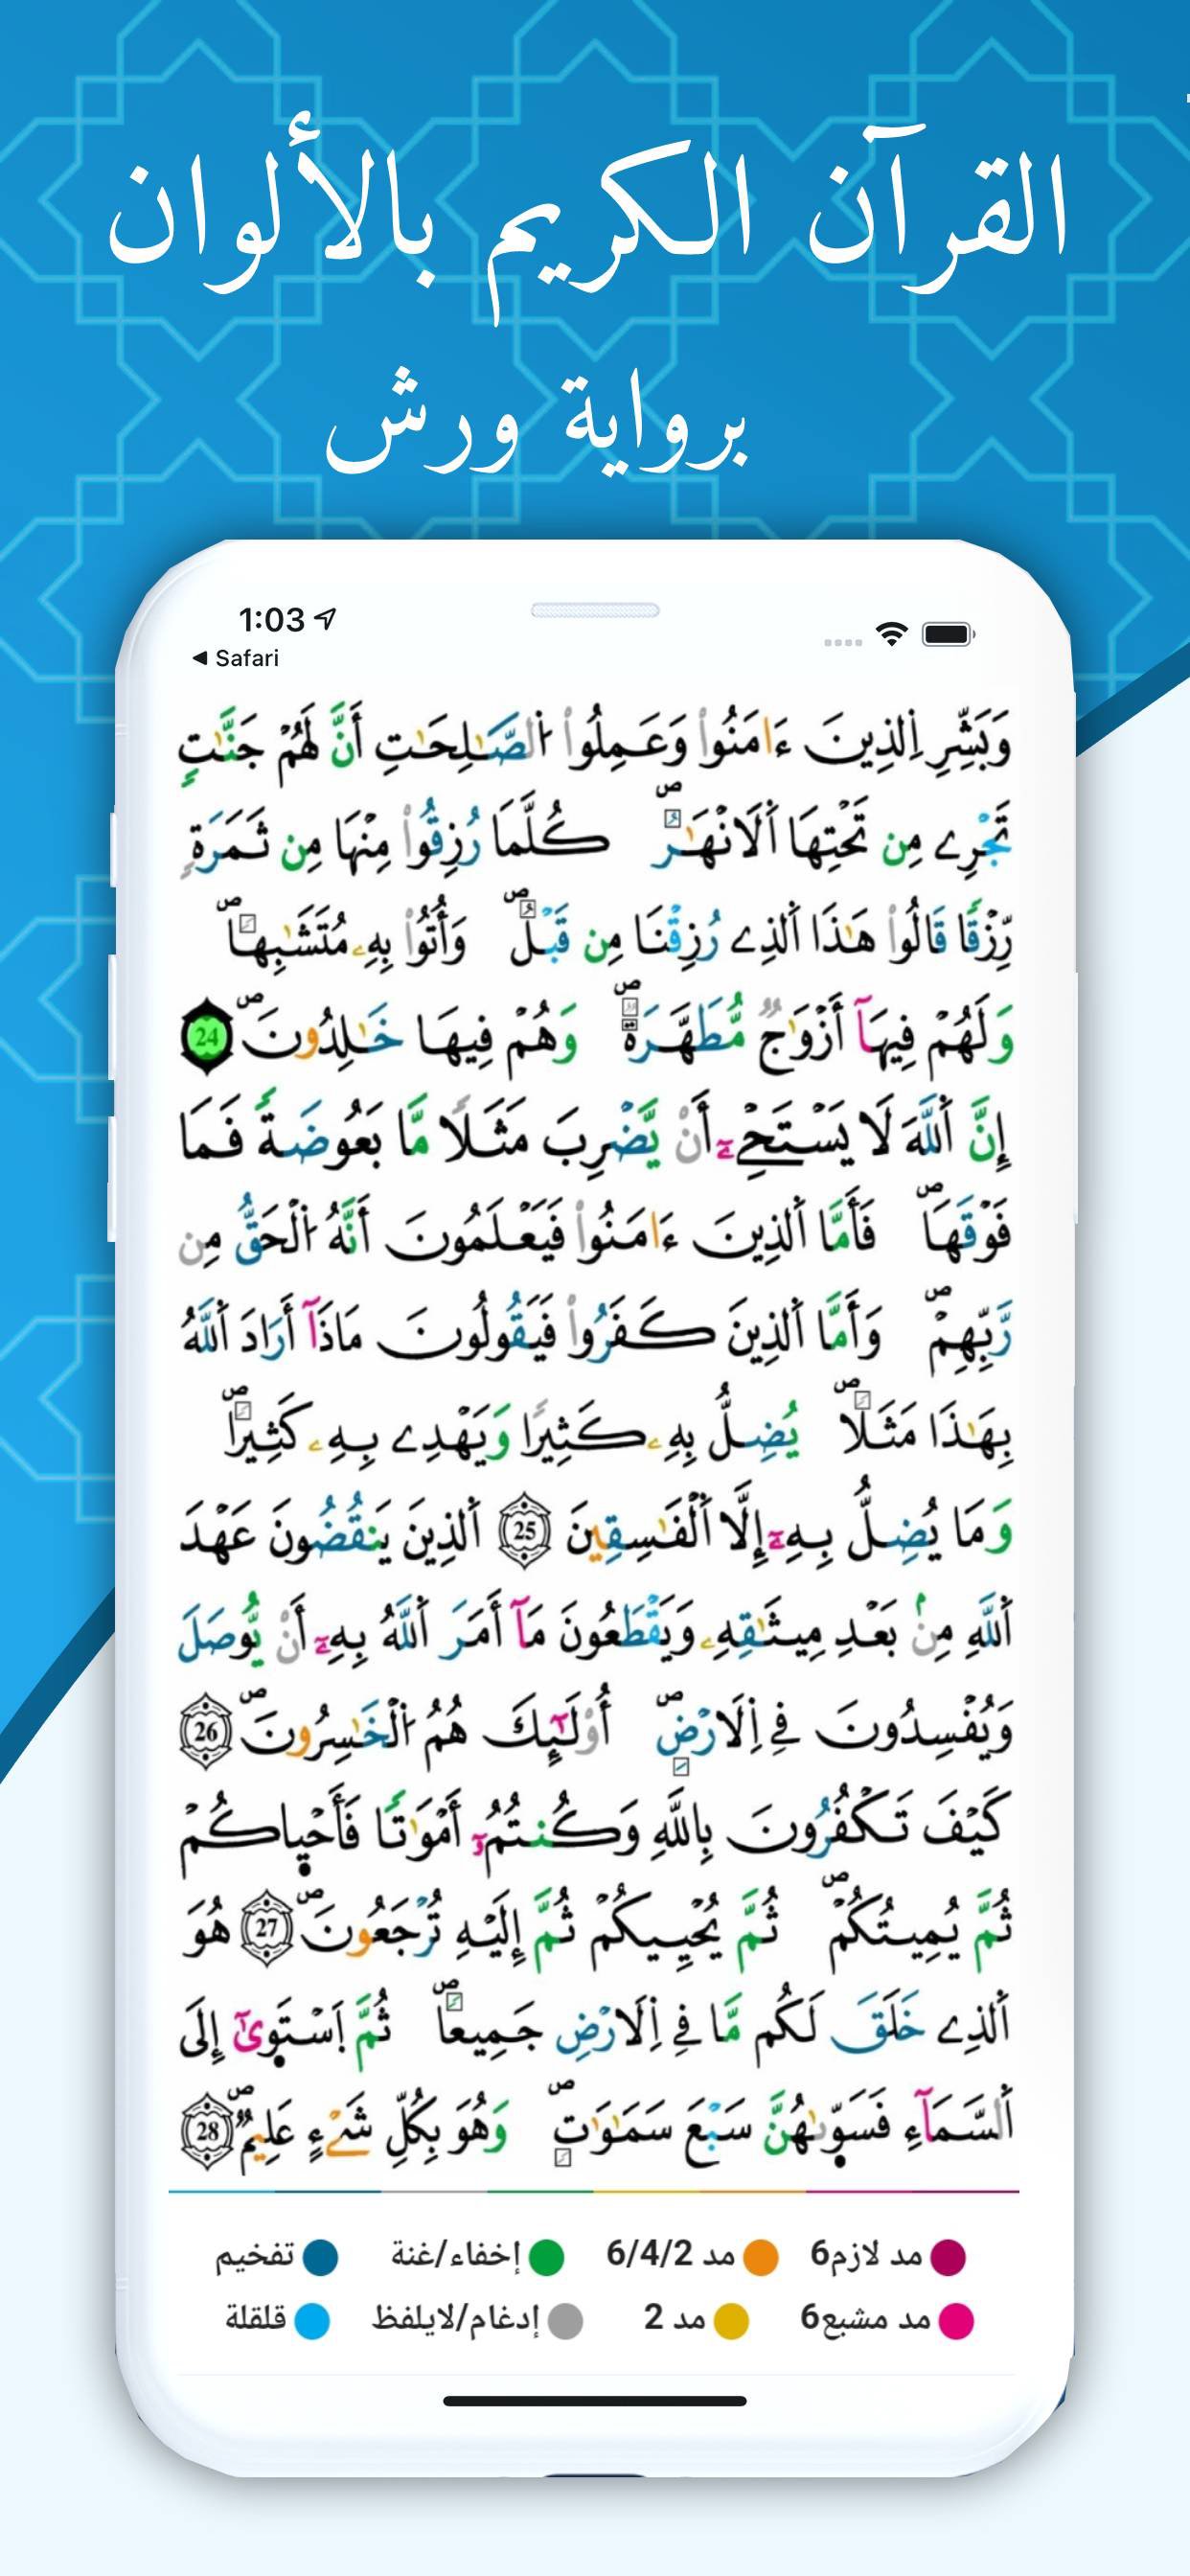 القرآن الكريم بالألوان
برواية ورش
1:03
Safari
وَبَشِّرِ اِ۬لذِينَ ءَامَنُواْ وَعَمِلُواْ اُ۬لصَّٰلِحَٰتِ أَنَّ لَهُمْ جَنَّٰتٖ
تَجْرِے مِن تَحْتِهَا اَ۬لَانْهَٰرُۖ كُلَّمَا رُزِقُواْ مِنْهَا مِن ثَمَرَةٖ
رِّزْقاٗ قَالُواْ هَٰذَا اَ۬لذِے رُزِقْنَا مِن قَبْلُۖ وَأُتُواْ بِهِۦ مُتَشَٰبِهاٗۖ
وَلَهُمْ فِيهَآ أَزْوَٰجٞ مُّطَهَّرَةٞۖ وَهُمْ فِيهَا خَٰلِدُونَۖ 24
إِنَّ اَ۬للَّهَ لَا يَسْتَحْيِۦٓ أَنْ يَّضْرِبَ مَثَلاٗ مَّا بَعُوضَةٗ فَمَا
فَوْقَهَاۖ فَأَمَّا اَ۬لذِينَ ءَامَنُواْ فَيَعْلَمُونَ أَنَّهُ اُ۬لْحَقُّ مِن
رَّبِّهِمْۖ وَأَمَّا اَ۬لذِينَ كَفَرُواْ فَيَقُولُونَ مَاذَآ أَرَادَ اَ۬للَّهُ
بِهَٰذَا مَثَلاٗۖ يُضِلُّ بِهِۦ كَثِيراٗ وَيَهْدِے بِهِۦ كَثِيراٗۖ
وَمَا يُضِلُّ بِهِۦٓ إِلَّا اَ۬لْفَٰسِقِينَ 25 اَ۬لذِينَ يَنقُضُونَ عَهْدَ
اَ۬للَّهِ مِنۢ بَعْدِ مِيثَٰقِهِۦ وَيَقْطَعُونَ مَآ أَمَرَ اَ۬للَّهُ بِهِۦٓ أَنْ يُّوصَلَ
وَيُفْسِدُونَ فِے اِ۬لَارْضِۖ أُوْلَٰٓئِكَ هُمُ اُ۬لْخَٰسِرُونَۖ 26
كَيْفَ تَكْفُرُونَ بِاللَّهِ وَكُنتُمُۥٓ أَمْوَٰتاٗ فَأَحْيٰاكُمْ
ثُمَّ يُمِيتُكُمْۖ ثُمَّ يُحْيِيكُمْ ثُمَّ إِلَيْهِ تُرْجَعُونَۖ 27 هُوَ
اَ۬لذِے خَلَقَ لَكُم مَّا فِے اِ۬لَارْضِ جَمِيعاٗۖ ثُمَّ اَ۪سْتَو۪يٰٓ إِلَى
اَ۬لسَّمَآءِ فَسَوّ۪يٰهُنَّ سَبْعَ سَمَٰوَٰتٖۖ وَهُوَ بِكُلِّ شَےْءٍ عَلِيمٞۖ 28
مد لازم6 مد 6/4/2 إخفاء/غنة تفخيم
مد مشبع6 مد 2 إدغام/لايلفظ قلقلة